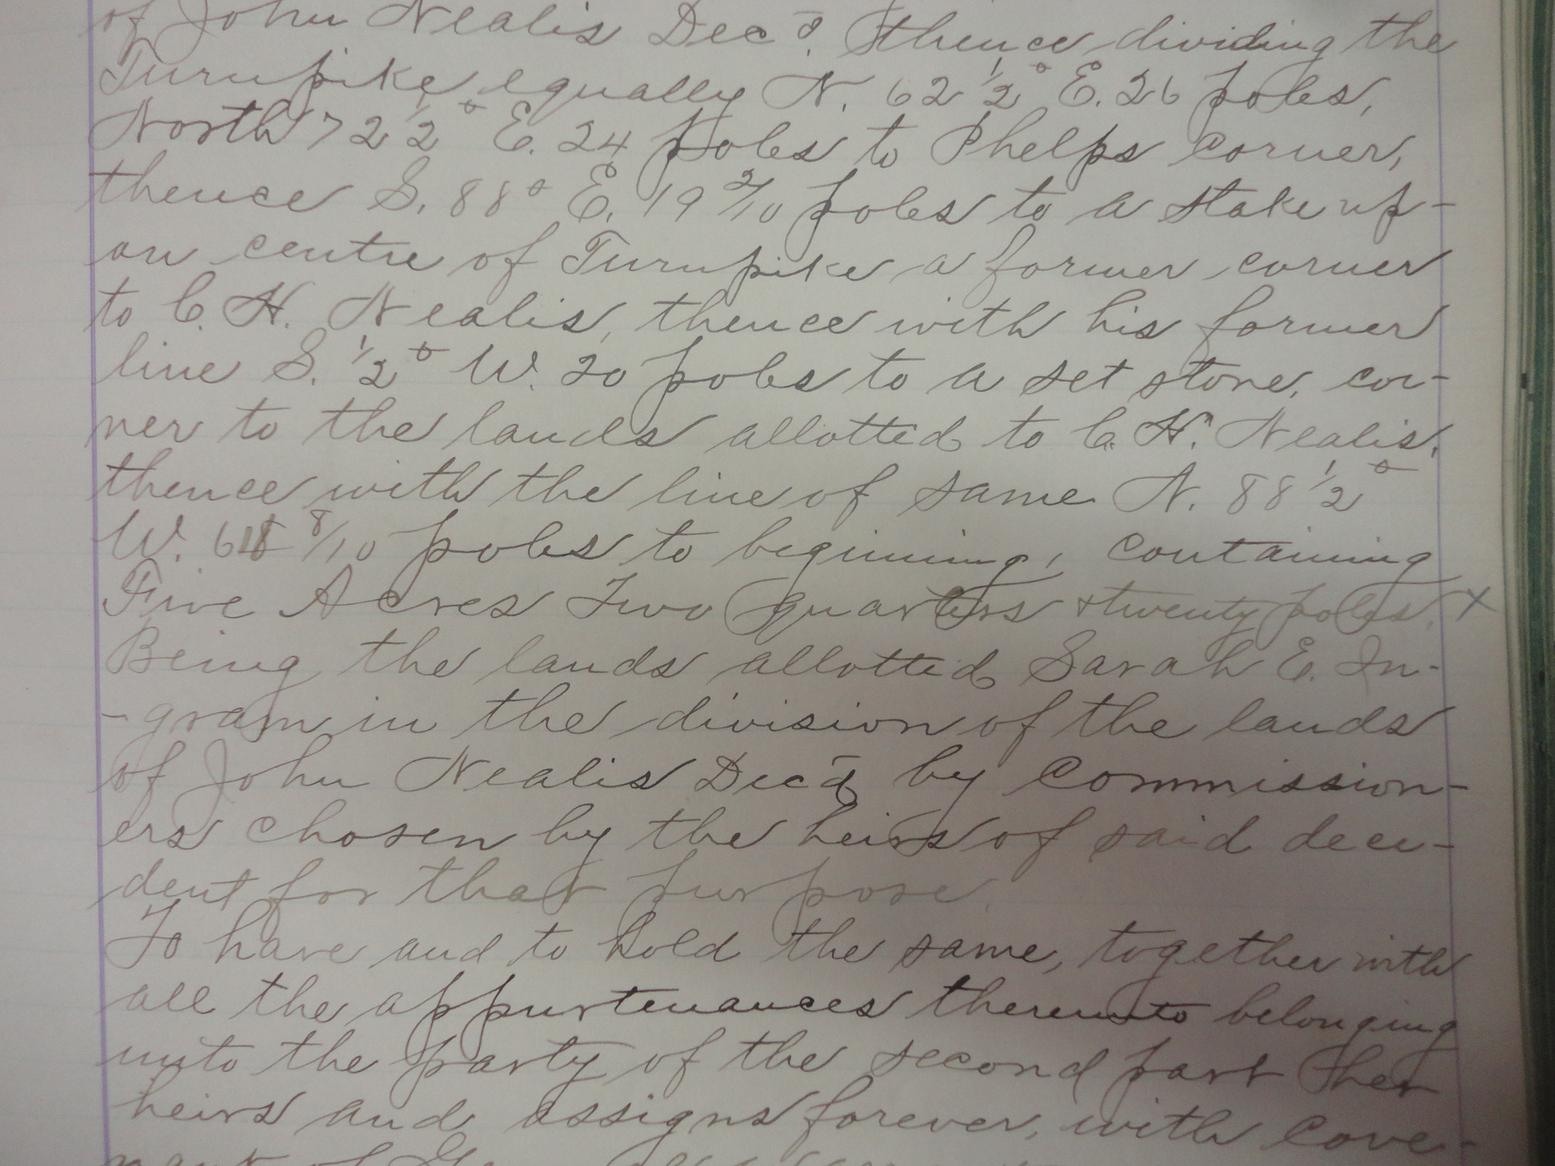 of John Nealis Dec'd. thence dividing the
Turnpike equally N. 62 1/2° E. 26 poles,
North 72 1/2° E. 24 poles to Phelps corner,
thence S. 88° E. 19 2/10 poles to a stake up-
on centre of Turnpike a former corner
to C. H. Nealis, thence with his former
line S. 1/2° W. 20 poles to a set stone, cor-
ner to the lands allotted to C. H. Nealis.
thence with the line of same N. 88 1/2°
W. 8/10 poles to beginning, containing
Five Acres Two quarters + twenty poles. x
Being the lands allotted Sarah E. In-
-gram in the division of the lands
of John Nealis Dec'd by Commission-
ers chosen by the heirs of said dece-
dent for that purpose.
To have and to hold the same, together with
all the appurtenances thereunto belonging
unto the party of the second part her
heirs and assigns forever, with Cove-
nant of